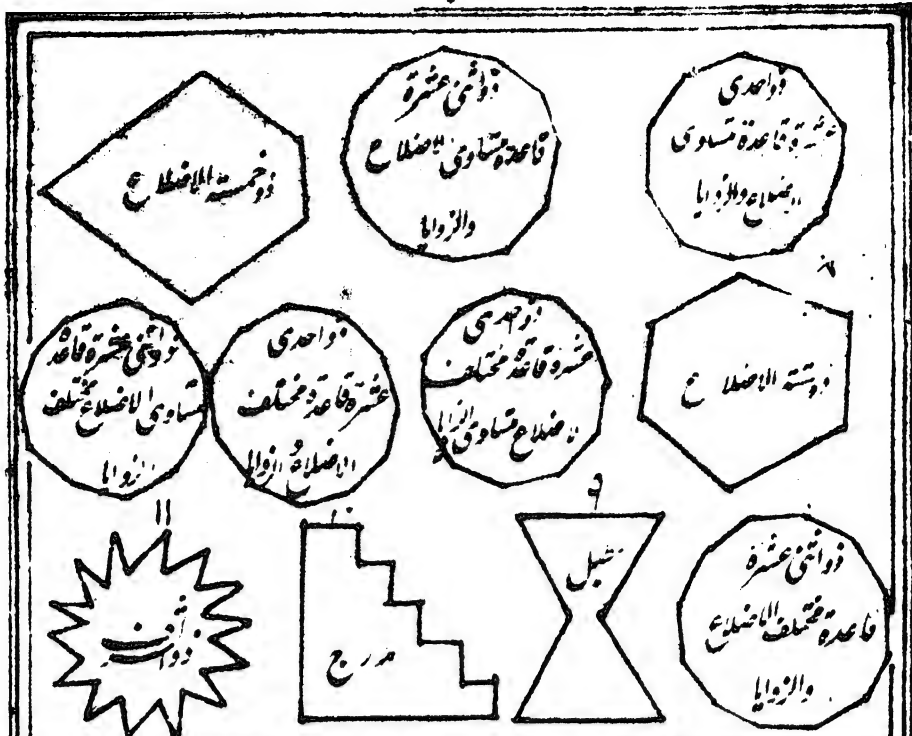 ذواحدی
عشرة قاعدة متساوی
الاضلاع والزوایا
ذواثنی عشرة
قاعدة متساوی الاضلاع
والزوایا
ذوخمسة الاضلاع
۸
ذوستة الاضلاع
ذواحدی
عشرة قاعدة مختلف
الاضلاع متساوی الزوایا
ذواحدی
عشرة قاعدة مختلف
الاضلاع و الزوایا
ذواثنی عشرة قاعدة
متساوی الاضلاع مختلف
الزوایا
ذواثنی عشرة
قاعدة مختلف الاضلاع
والزوایا
۹
طبل
۱۰
مدرج
۱۱